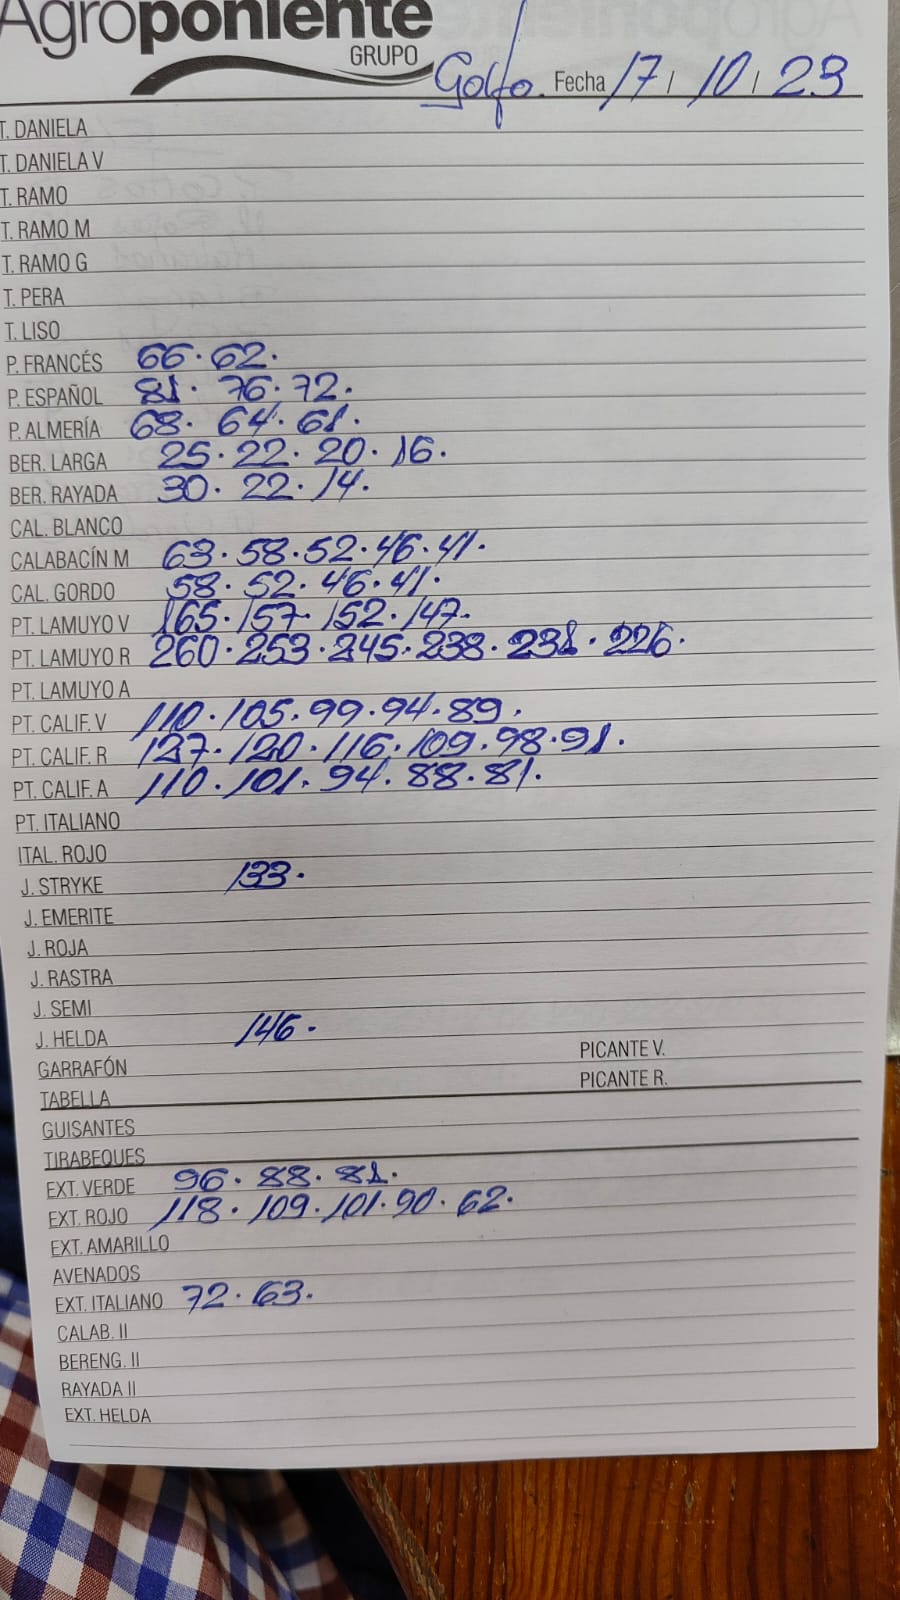 Agroponiente
GRUPO
Golfo. Fecha 17 / 10 / 23
T. DANIELA
T. DANIELA V
T. RAMO
T. RAMO M
T. RAMO G
T. PERA
T. LISO
P. FRANCÉS 66. 62.
P. ESPAÑOL 81. 76. 72.
P. ALMERÍA 68. 64. 61.
BER. LARGA 25. 22. 20. 16.
BER. RAYADA 30. 22. 14.
CAL. BLANCO
CALABACÍN M 63. 58. 52. 46. 41.
CAL. GORDO 58. 52. 46. 41.
PT. LAMUYO V 165. 157. 152. 147.
PT. LAMUYO R 260. 253. 245. 238. 231. 226.
PT. LAMUYO A
PT. CALIF. V 110. 105. 99. 94. 89.
PT. CALIF. R 127. 120. 116. 109. 98. 91.
PT. CALIF. A 110. 101. 94. 88. 81.
PT. ITALIANO
ITAL. ROJO
J. STRYKE 133.
J. EMERITE
J. ROJA
J. RASTRA
J. SEMI
J. HELDA 146.
GARRAFÓN PICANTE V.
TABELLA PICANTE R.
GUISANTES
TIRABEQUES
EXT. VERDE 96. 88. 81.
EXT. ROJO 118. 109. 101. 90. 62.
EXT. AMARILLO
AVENADOS
EXT. ITALIANO 72. 63.
CALAB. II
BERENG. II
RAYADA II
EXT. HELDA